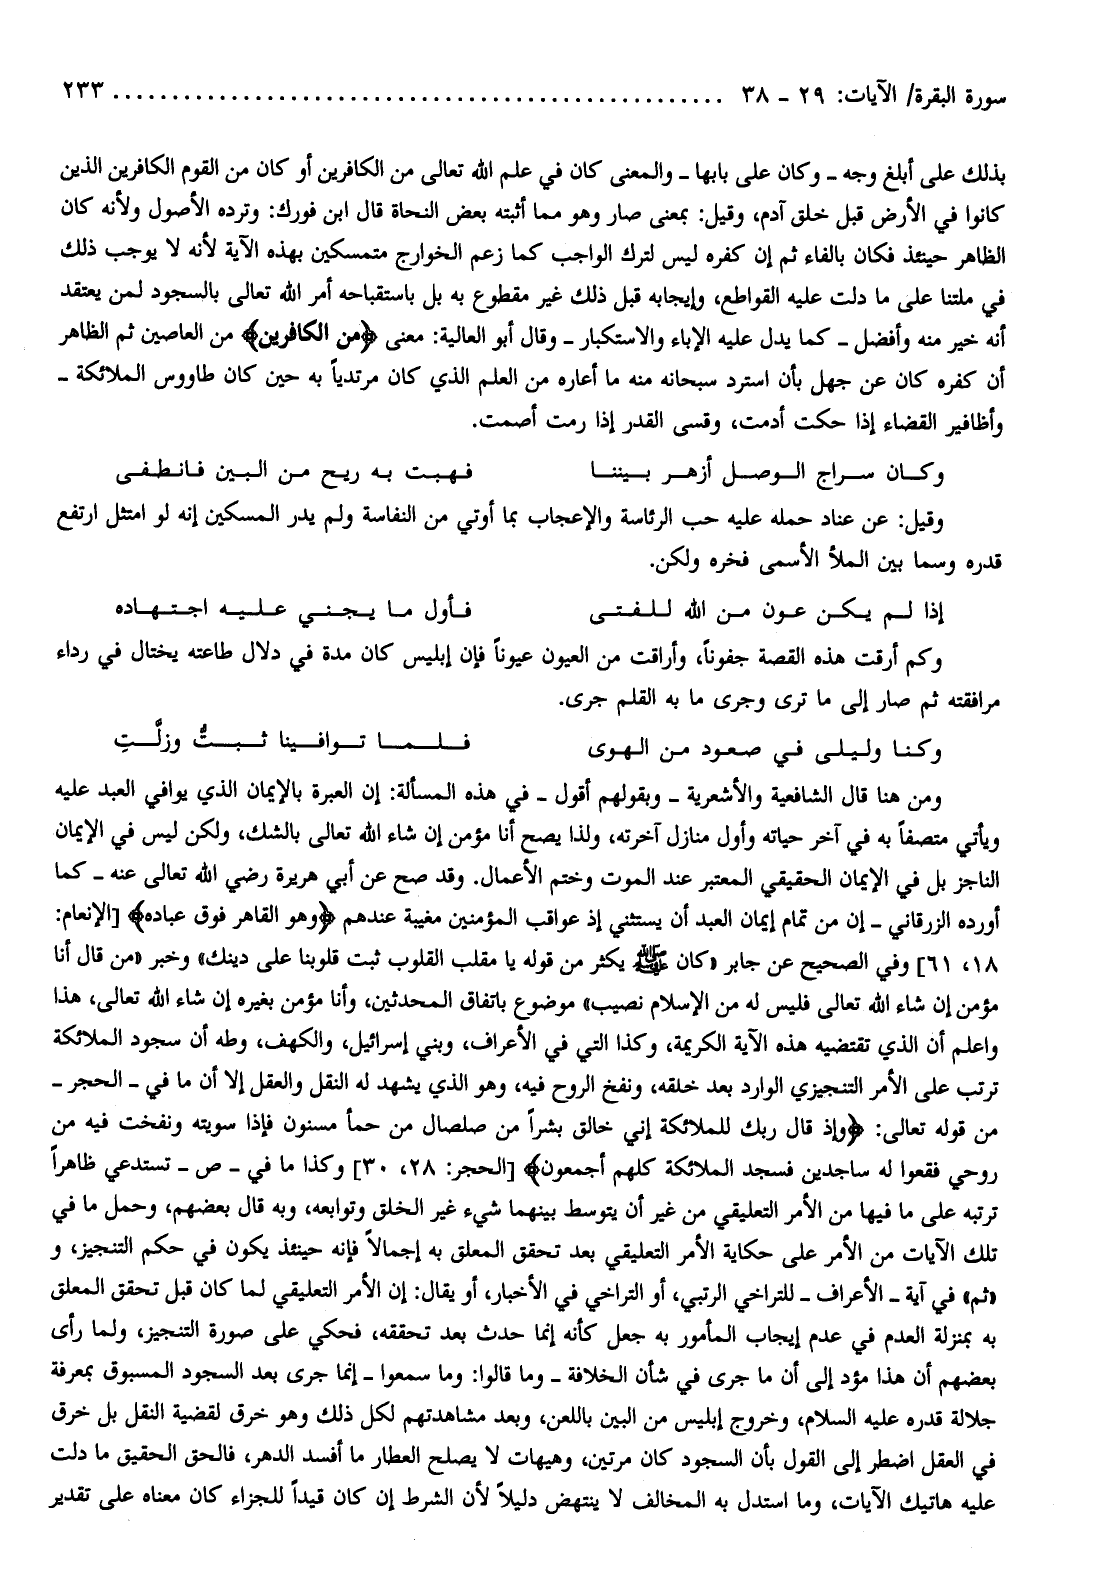 سورة البقرة/ الآيات: ٢٩ - ٣٨ ................................................... ٢٣٣
بذلك على أبلغ وجه - وكان على بابها - والمعنى كان في علم الله تعالى من الكافرين أو كان من القوم الكافرين الذين
كانوا في الأرض قبل خلق آدم، وقيل: بمعنى صار وهو مما أثبته بعض النحاة قال ابن فورك: وترده الأصول ولأنه كان
الظاهر حينئذ فكان بالفاء ثم إن كفره ليس لترك الواجب كما زعم الخوارج متمسكين بهذه الآية لأنه لا يوجب ذلك
في ملتنا على ما دلت عليه القواطع، وإيجابه قبل ذلك غير مقطوع به بل باستقباحه أمر الله تعالى بالسجود لمن يعتقد
أنه خير منه وأفضل - كما يدل عليه الإباء والاستكبار - وقال أبو العالية: معنى ﴿من الكافرين﴾ من العاصين ثم الظاهر
أن كفره كان عن جهل بأن استرد سبحانه منه ما أعاره من العلم الذي كان مرتدياً به حين كان طاووس الملائكة -
وأظافير القضاء إذا حكت أدمت، وقسى القدر إذا رمت أصمت.
وكان سراج الوصل أزهر بيننا فهبت به ريح من البين فانطفى
وقيل: عن عناد حمله عليه حب الرئاسة والإعجاب بما أوتي من النفاسة ولم يدر المسكين إنه لو امتثل ارتفع
قدره وسما بين الملأ الأسمى فخره ولكن.
إذا لم يكن عون من الله للفتى فأول ما يجني عليه اجتهاده
وكم أرقت هذه القصة جفوناً، وأراقت من العيون عيوناً فإن إبليس كان مدة في دلال طاعته يختال في رداء
مرافقته ثم صار إلى ما ترى وجرى ما به القلم جرى.
وكنا وليلى في صعود من الهوى فلما توافينا ثبتُّ وزلَّتِ
ومن هنا قال الشافعية والأشعرية - وبقولهم أقول - في هذه المسألة: إن العبرة بالإيمان الذي يوافي العبد عليه
ويأتي متصفاً به في آخر حياته وأول منازل آخرته، ولذا يصح أنا مؤمن إن شاء الله تعالى بالشك، ولكن ليس في الإيمان
الناجز بل في الإيمان الحقيقي المعتبر عند الموت وختم الأعمال. وقد صح عن أبي هريرة رضي الله تعالى عنه - كما
أورده الزرقاني - إن من تمام إيمان العبد أن يستثني إذ عواقب المؤمنين مغيبة عندهم ﴿وهو القاهر فوق عباده﴾ [الإنعام:
١٨، ٦١] وفي الصحيح عن جابر «كان ﷺ يكثر من قوله يا مقلب القلوب ثبت قلوبنا على دينك» وخبر «من قال أنا
مؤمن إن شاء الله تعالى فليس له من الإسلام نصيب» موضوع باتفاق المحدثين، وأنا مؤمن بغيره إن شاء الله تعالى، هذا
واعلم أن الذي تقتضيه هذه الآية الكريمة، وكذا التي في الأعراف، وبني إسرائيل، والكهف، وطه أن سجود الملائكة
ترتب على الأمر التنجيزي الوارد بعد خلقه، ونفخ الروح فيه، وهو الذي يشهد له النقل والعقل إلا أن ما في - الحجر -
من قوله تعالى: ﴿وإذ قال ربك للملائكة إني خالق بشراً من صلصال من حمأ مسنون فإذا سويته ونفخت فيه من
روحي فقعوا له ساجدين فسجد الملائكة كلهم أجمعون﴾ [الحجر: ٢٨، ٣٠] وكذا ما في - ص - تستدعي ظاهراً
ترتبه على ما فيها من الأمر التعليقي من غير أن يتوسط بينهما شيء غير الخلق وتوابعه، وبه قال بعضهم، وحمل ما في
تلك الآيات من الأمر على حكاية الأمر التعليقي بعد تحقق المعلق به إجمالاً فإنه حينئذ يكون في حكم التنجيز، و
«ثم» في آية - الأعراف - للتراخي الرتبي، أو التراخي في الأخبار، أو يقال: إن الأمر التعليقي لما كان قبل تحقق المعلق
به بمنزلة العدم في عدم إيجاب المأمور به جعل كأنه إنما حدث بعد تحققه، فحكي على صورة التنجيز، ولما رأى
بعضهم أن هذا مؤد إلى أن ما جرى في شأن الخلافة - وما قالوا: وما سمعوا - إنما جرى بعد السجود المسبوق بمعرفة
جلالة قدره عليه السلام، وخروج إبليس من البين باللعن، وبعد مشاهدتهم لكل ذلك وهو خرق لقضية النقل بل خرق
في العقل اضطر إلى القول بأن السجود كان مرتين، وهيهات لا يصلح العطار ما أفسد الدهر، فالحق الحقيق ما دلت
عليه هاتيك الآيات، وما استدل به المخالف لا ينتهض دليلاً لأن الشرط إن كان قيداً للجزاء كان معناه على تقدير